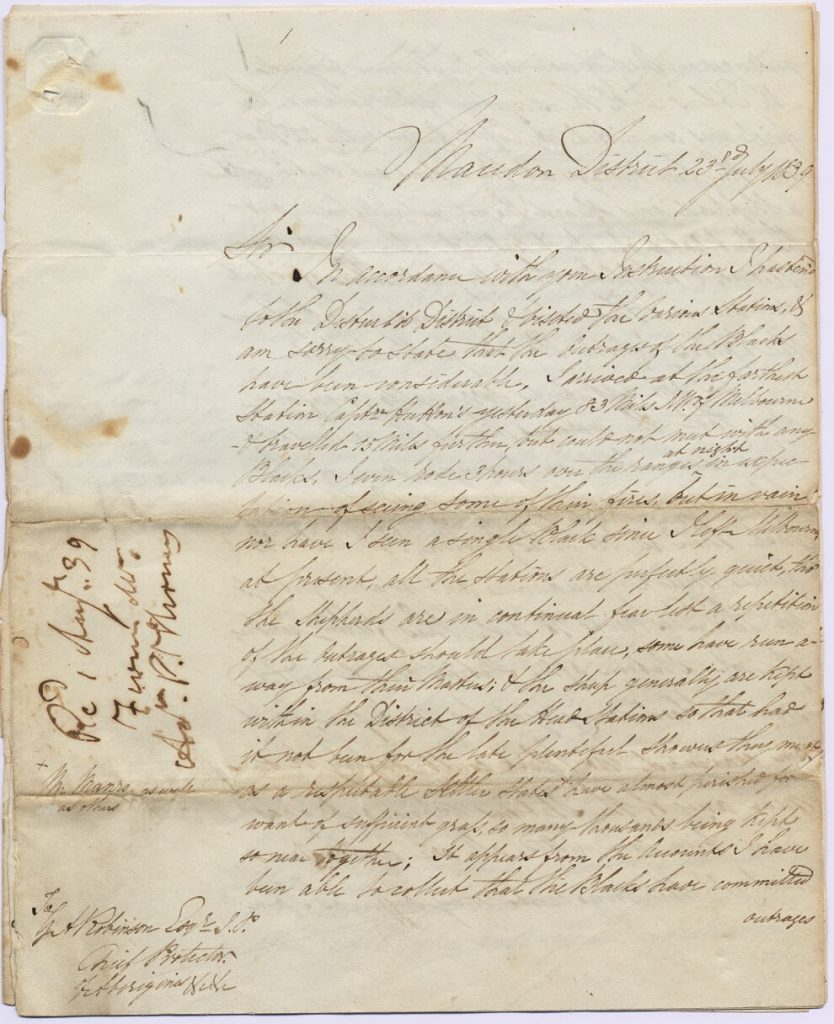 Macedon District 23rd July 1839
Sir
In accordance with your Instruction I hastened
to the Disturb'd District & visited the various Stations, &
am sorry to state that the outrages of the Blacks
have been considerable. I arrived at the farthest
Station Captn Hutton's yesterday 83 Miles NW of Melbourne
& travelled 15 Miles further, but could not meet with any
Blacks, I even rode 3 hours over the ranges at night in expec-
tation of seeing some of their fires, but in vain
nor have I seen a single Black since I left Melbourne
at present, all the Stations are perfectly quiet, tho'
the Shepherds are in continual fear lest a repitition
of the outrages should take place, some have run a-
way from their Masters; & the sheep generally are kept
within the District of the Head Stations so that had
it not been for the late plentiful showers they must,
as a respectable settler states + have almost perished for
want of sufficient grass, so many thousands being kept
so near together; It appears from the Accounts I have
been able to collect that the Blacks have committed
outrages
+ Mr as well
as others
To
G A Robinson Esqre J.P.
Chief Protector
of Aborigines &c &c
Recd 1 Augt. 39
From Mr.
Asst. Pr. Thomas